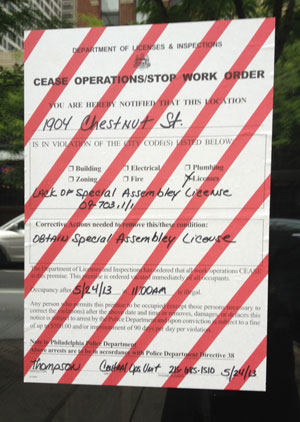 DEPARTMENT OF LICENSES & INSPECTIONS
CEASE OPERATIONS/STOP WORK ORDER
YOU ARE HEREBY NOTIFIED THAT THIS LOCATION
1904 Chestnut St.
IS IN VIOLATION OF THE CITY CODE(S) LISTED BELOW:
Building Electrical Plumbing
Zoning Fire Licenses
Lack of Special Assembley License
09-703.1/1
Corrective Actions needed to remove this/these condition:
OBTAIN Special Assembley License
The Department of Licenses and Inspections has ordered that all work operations CEASE
at this premise. This premise is ordered vacated immediately of all occupants.
Occupancy after 5/24/13 11:00AM is illegal.
Any person who permits this premise to be occupied (except those persons necessary to
correct the violation) after the above date and time or removes, damages, or defaces this
notice is subject to arrest by the Police Department and upon conviction is subject to a fine
of up to $300.00 and/or imprisonment of 90 days per day per violation.
Note to Philadelphia Police Department
Above arrests are to be in accordance with Police Department Directive 38
Thompson Central Ops Unit 215-685-1510 5/24/13